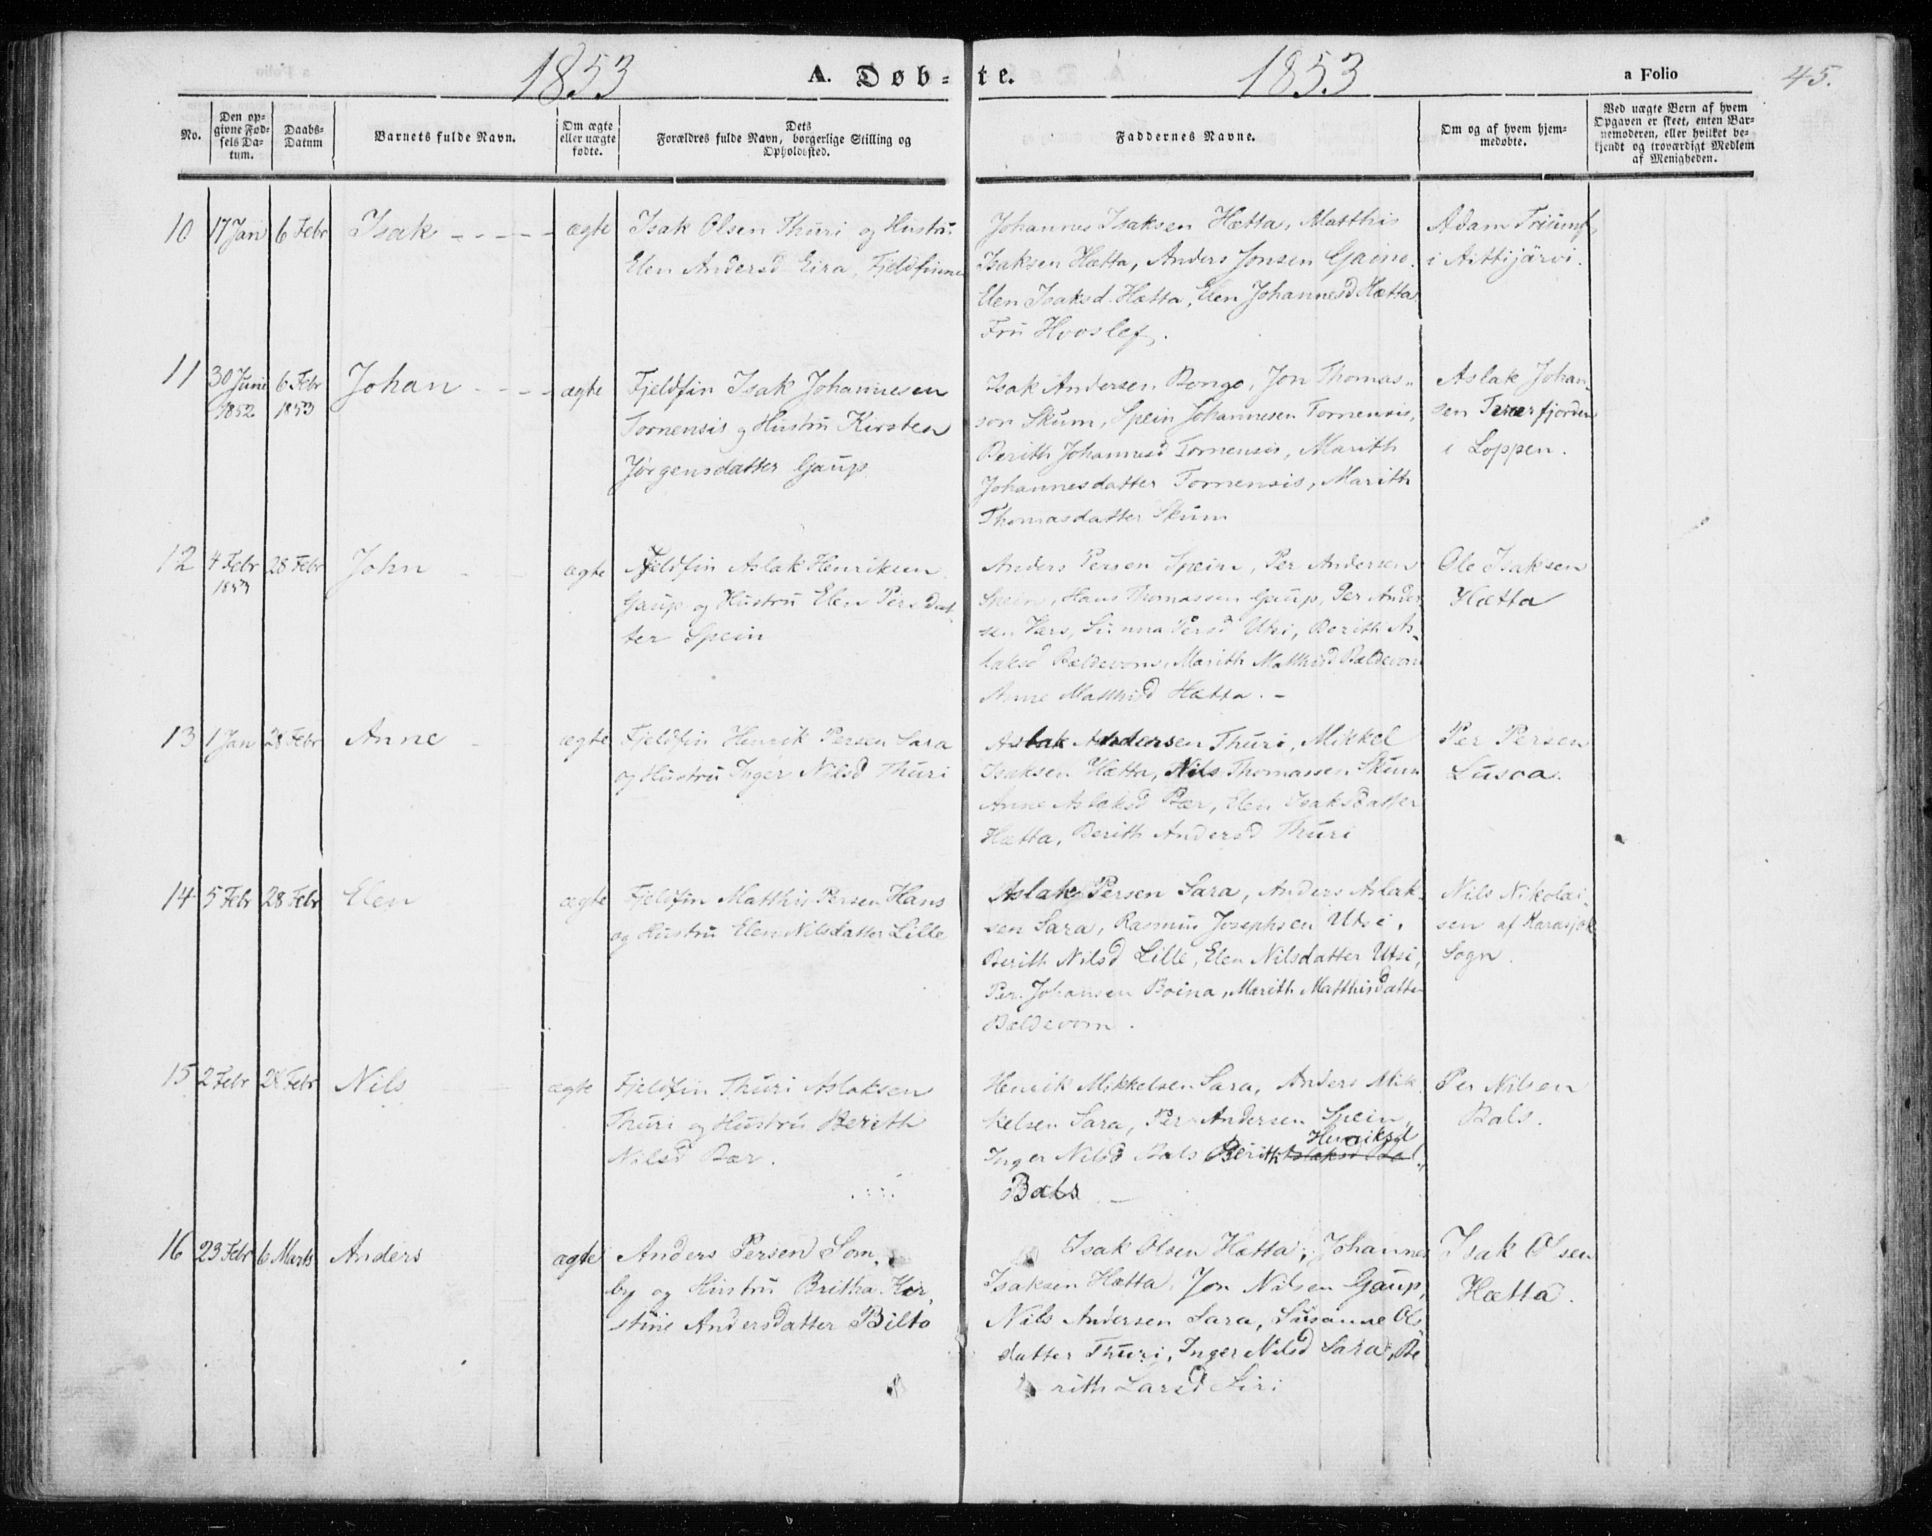 1853 A. Døb- te. 1853 a Folio 45.
No.
Den op-
givne Fød-
sels Da-
tum.
Daabs-
Datum
Barnets fulde Navn.
Om ægte
eller uægte
fødte.
Dets
Forældres fulde Navn, borgerlige Stilling og
Opholdssted.
Faddernes Navne.
Om og af hvem hjem-
medøbte.
Ved uægte Børn af hvem
Opgaven er skeet, enten Bar-
nemoderen, eller hvilket be-
kjendt og troværdigt Medlem
af Menigheden.
10 17 Jan 6 Febr Isak ægte
Isak Olsen Thuri og Hustru
Elen Andersd Eira, Fjeldfinne
Johannes Isaksen Hætta, Matthis
Isaksen Hætta, Anders Jonsen Gaino.
Elen Isaksd. Hætta, Elen Johannesd Hætta
Fru Hvoslef.
Adam Triumf,
i Aittijärvi.
11 30 Juni 1852 6 Febr 1853 Johan ægte
Fjeldfin Isak Johannesen
Tornensis og Hustru Kirsten
Jörgensdatter Gaup
Isak Andersen Bongo, Jon Thomas-
son Skum, Spein Johannesen Tornensis,
Berith Johannesd Tornensis, Marith
Johannesdatter Tornensis, Marith
Thomasdatter Skum
Aslak Johan-
sen fjorden
i Loppen.
12 4 Febr 1853 28 Febr John ægte
Fjeldfin Aslak Henriksen
Gaup og Hustru Elen Persdat-
ter Spein
Anders Persen Spein, Per Andersen
Spein, Hans Thomassen Gaup, Per Ander-
sen Vars, Sunna Persd Utsi, Berith As-
laksd Bældevom, Marith Matthisd Bældevom
Anne Matthisd Hætta. -
Ole Isaksen
Hætta
13 1 Jan 28 Febr Anne ægte
Fjeldfin Henrik Persen Sara
og Hustru Inger Nilsd Thuri
Aslak Andersen Thuri, Mikkel
Isaksen Hætta, Nils Thomassen Skum
Anne Aslaksd Bær, Elen Isaksdatter
Hætta, Berith Andersd Thuri
Per Persen
Lusoa.
14 5 Febr 28 Febr Elen ægte
Fjeldfin Matthis Persen Hans
og Hustru Elen Nilsdatter Lille
Aslak Persen Sara, Anders Aslak-
sen Sara, Rasmus Josephsen Utsi,
Berith Nilsd Lille, Elen Nilsdatter Utsi,
Per Johansen Boina, Marith Matthisdatter
Bældevom.
Nils Nikolai-
sen af Karasjok
Sogn.
15 2 Febr 28 Febr Nils ægte
Fjeldfin Thuri Aslaksen
Thuri og Hustru Berith
Nilsd Bær.
Henrik Mikkelsen Sara, Anders Mik-
kelsen Sara, Per Andersen Spein,
Henriksd
Inger Nilsd Bals Berith Aslaksd
Bals
Per Nilsen
Bals.
16 23 Febr 6 Marts Anders ægte
Anders Persen Som-
by og Hustru Britha Kir-
stine Andersdatter Bilto
Isak Olsen Hætta, Johannes
Isaksen Hætta, Jon Nilsen Gaup,
Nils Andersen Sara, Susanne Ols
datter Thuri, Inger Nilsd Sara, Be
rith Larsd Siri
Isak Olsen
Hætta.